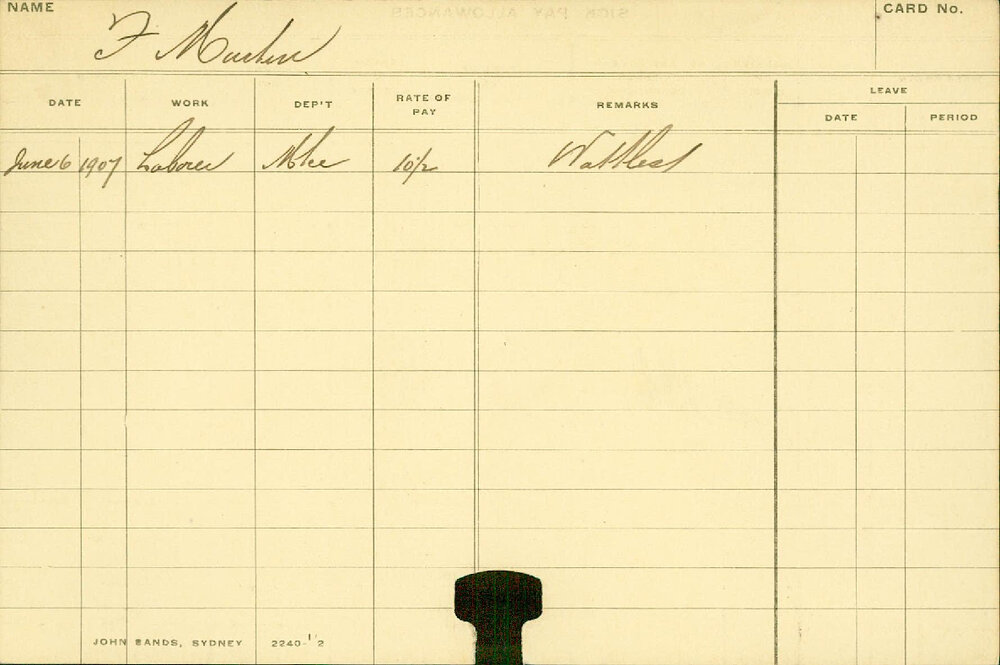 NAME
F Martin
CARD No.
DATE WORK DEP'T RATE OF PAY REMARKS LEAVE
DATE PERIOD
June 6 1907 Laborer Mtce 10/2
JOHN SANDS, SYDNEY 2240-1'2